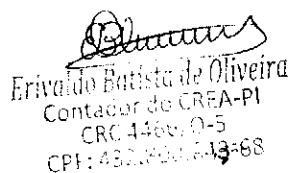 Erivaldo Batista de Oliveira
Contador do CREA-PI
CRC 4466/O-5
CPF: 432.